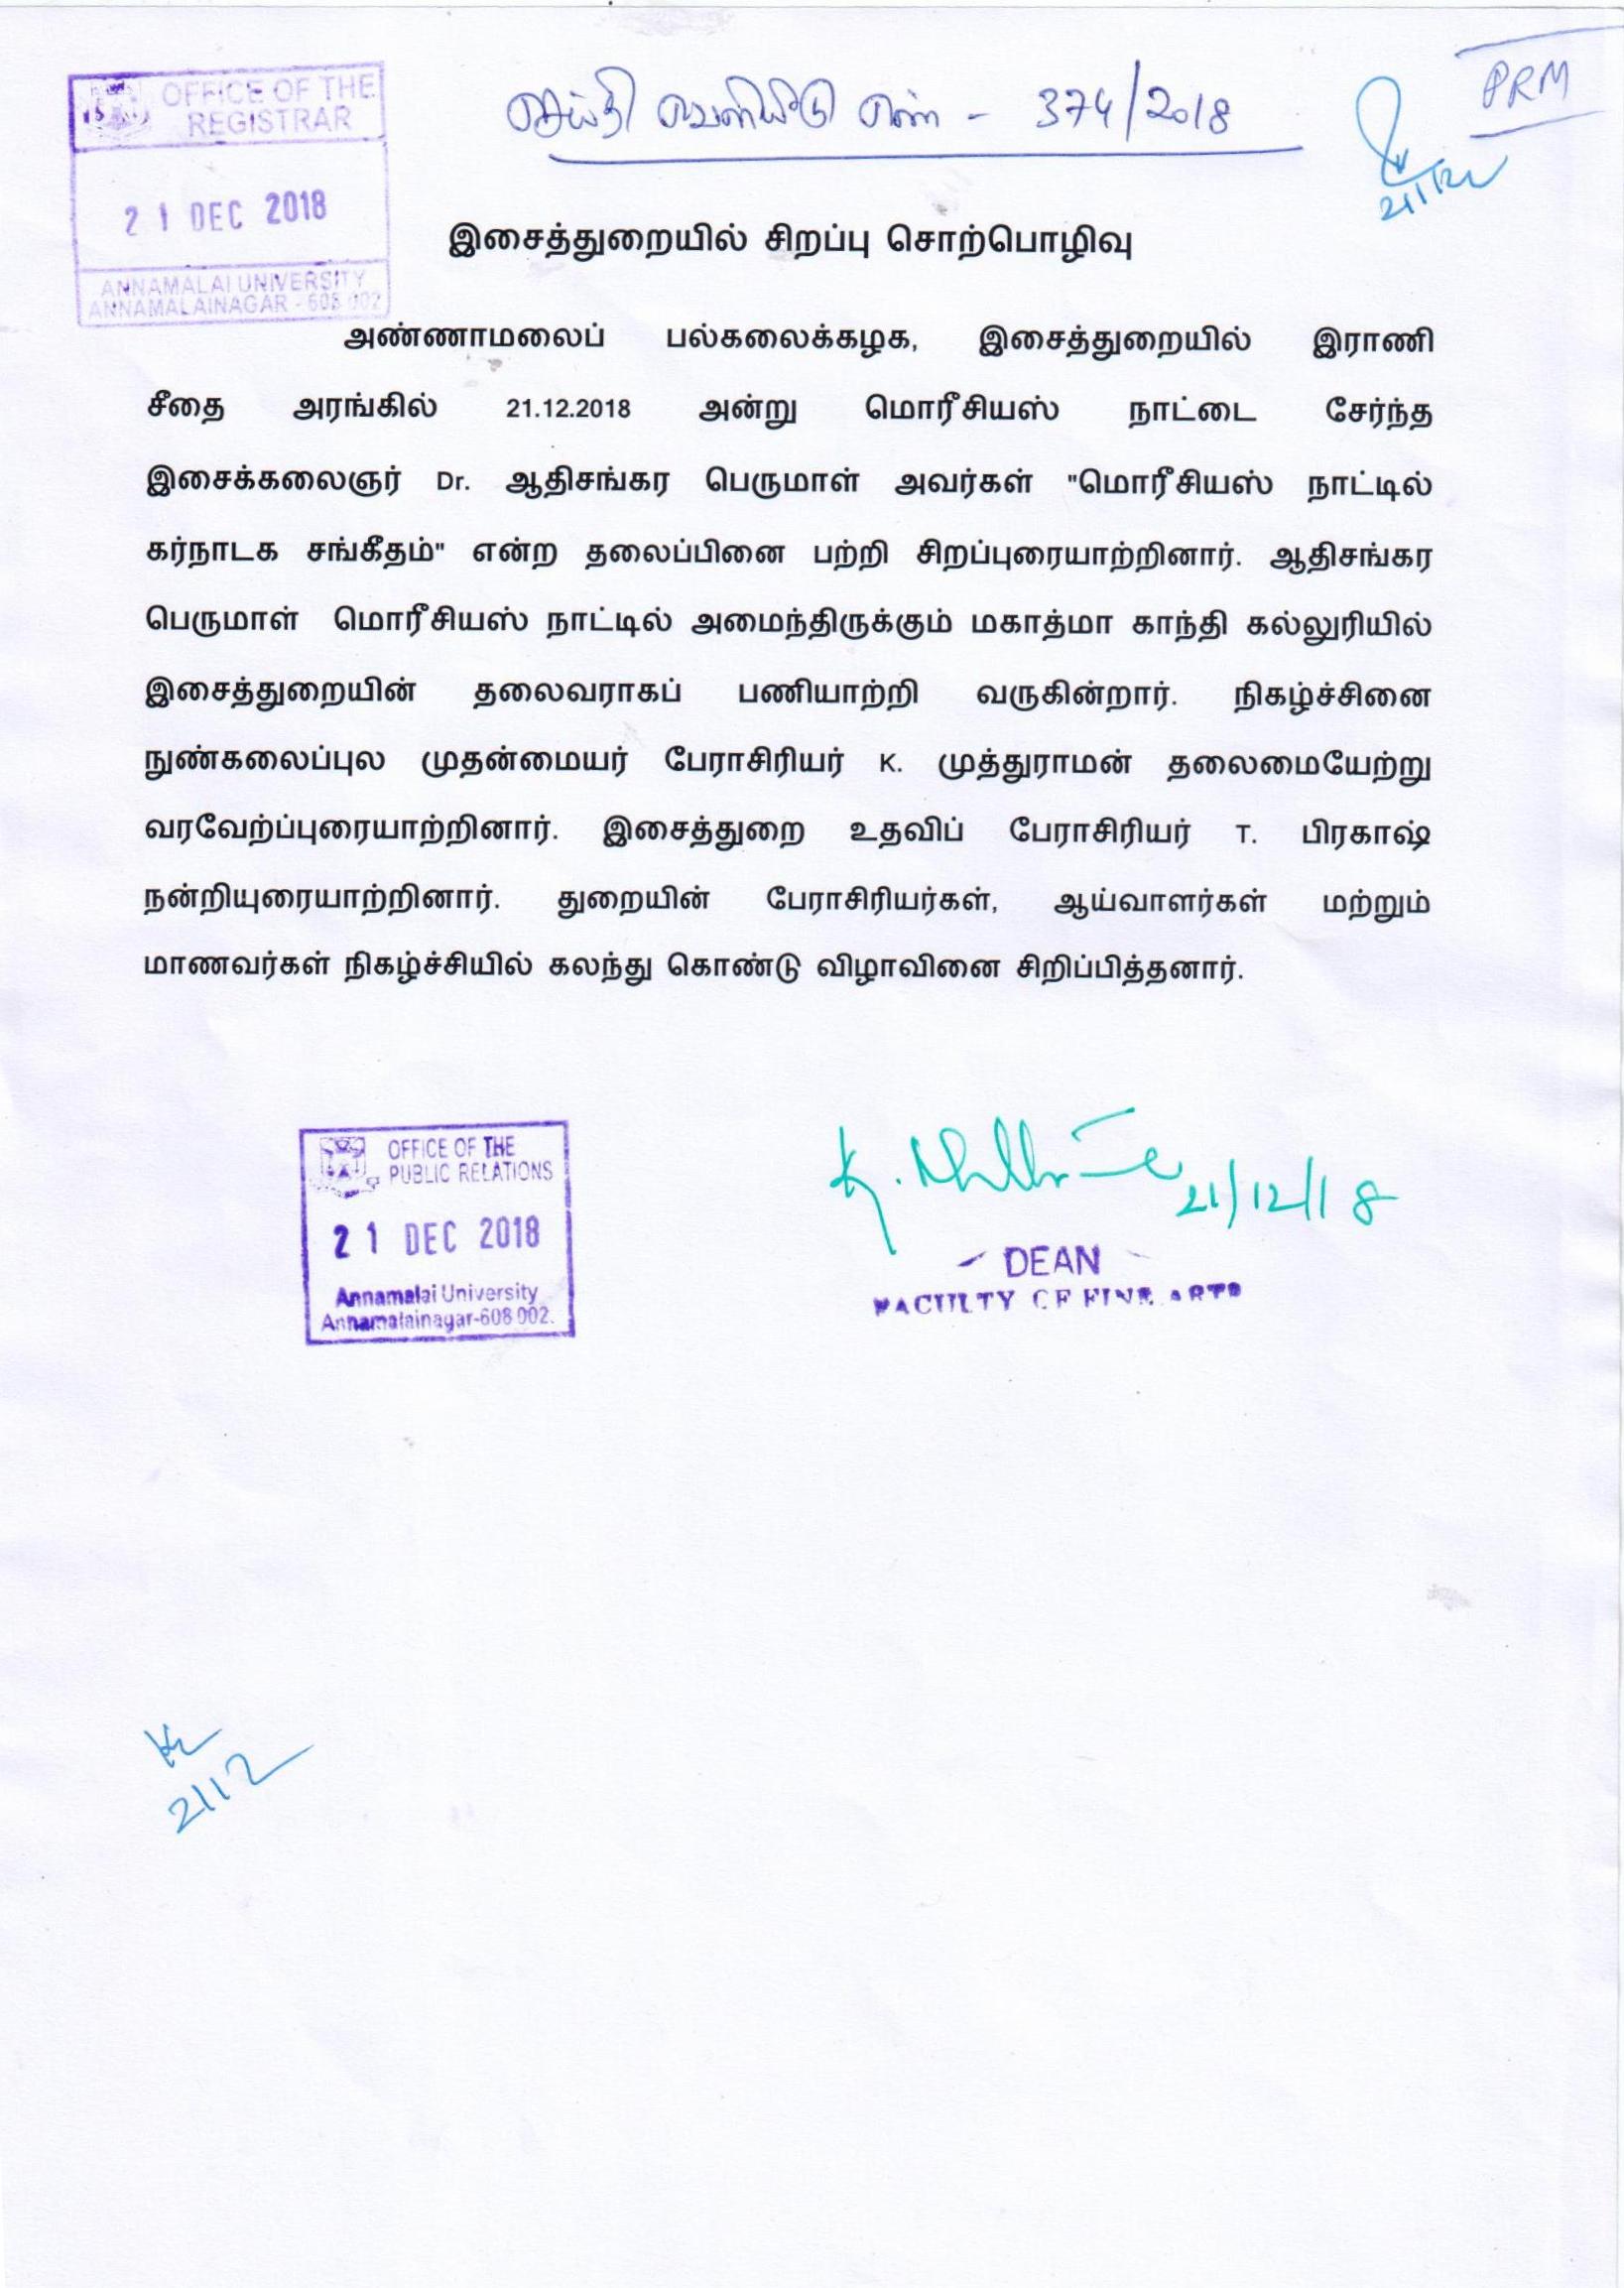 OFFICE OF THE
REGISTRAR
21 DEC 2018
ANNAMALAI UNIVERSITY
ANNAMALAINAGAR - 608 002
செய்தி வெளியீடு எண் - 374/2018
PRM
21/12
இசைத்துறையில் சிறப்பு சொற்பொழிவு
அண்ணாமலைப் பல்கலைக்கழக, இசைத்துறையில் இராணி
சீதை அரங்கில் 21.12.2018 அன்று மொரீசியஸ் நாட்டை சேர்ந்த
இசைக்கலைஞர் Dr. ஆதிசங்கர பெருமாள் அவர்கள் "மொரீசியஸ் நாட்டில்
கர்நாடக சங்கீதம்" என்ற தலைப்பினை பற்றி சிறப்புரையாற்றினார். ஆதிசங்கர
பெருமாள் மொரீசியஸ் நாட்டில் அமைந்திருக்கும் மகாத்மா காந்தி கல்லுரியில்
இசைத்துறையின் தலைவராகப் பணியாற்றி வருகின்றார். நிகழ்ச்சினை
நுண்கலைப்புல முதன்மையர் பேராசிரியர் K. முத்துராமன் தலைமையேற்று
வரவேற்ப்புரையாற்றினார். இசைத்துறை உதவிப் பேராசிரியர் T. பிரகாஷ்
நன்றியுரையாற்றினார். துறையின் பேராசிரியர்கள், ஆய்வாளர்கள் மற்றும்
மாணவர்கள் நிகழ்ச்சியில் கலந்து கொண்டு விழாவினை சிறிப்பித்தனார்.
OFFICE OF THE
PUBLIC RELATIONS
21 DEC 2018
Annamalai University
Annamalainagar-608 002.
21/12/18
DEAN
FACULTY OF FINE ARTS
21/12